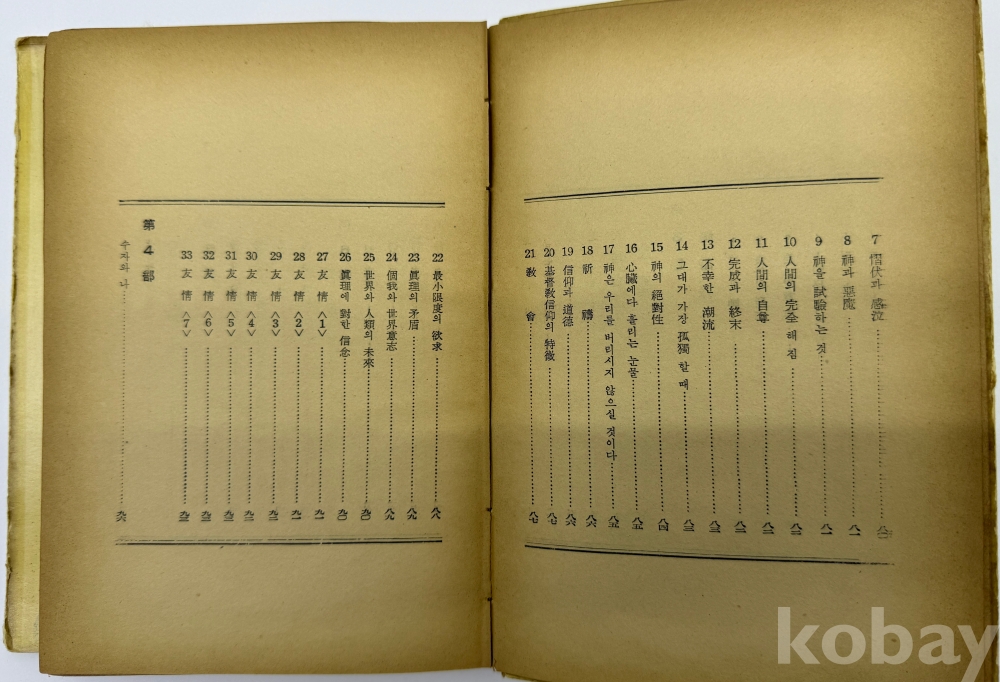 7 慴伏과 感泣
8 神과 惡魔 八一
9 神을 試驗하는 것 八一
10 人間의 完全 해 짐 八二
11 人間의 自尊 八二
12 完成과 終末 八三
13 不幸한 潮流 八三
14 그대가 가장 孤獨 할 때 八三
15 神의 絕對性 八四
16 心臟에다 흘리는 눈물 八五
17 神은 우리를 버리시지 않으실 것이다 八五
18 祈 禱 八六
19 信仰과 道德 八六
20 基督敎信仰의 特徵 八七
21 敎 會 八七
22 最小限度의 欲求 八八
23 眞理의 矛盾 八九
24 個我와 世界意志 八九
25 世界와 人類의 未來 九〇
26 眞理에 對한 信念 九〇
27 友 情 <1> 九一
28 友 情 <2> 九一
29 友 情 <3> 九二
30 友 情 <4> 九二
31 友 情 <5> 九三
32 友 情 <6> 九三
33 友 情 <7> 九三
第 4 部
수자와 나 九六
kobay